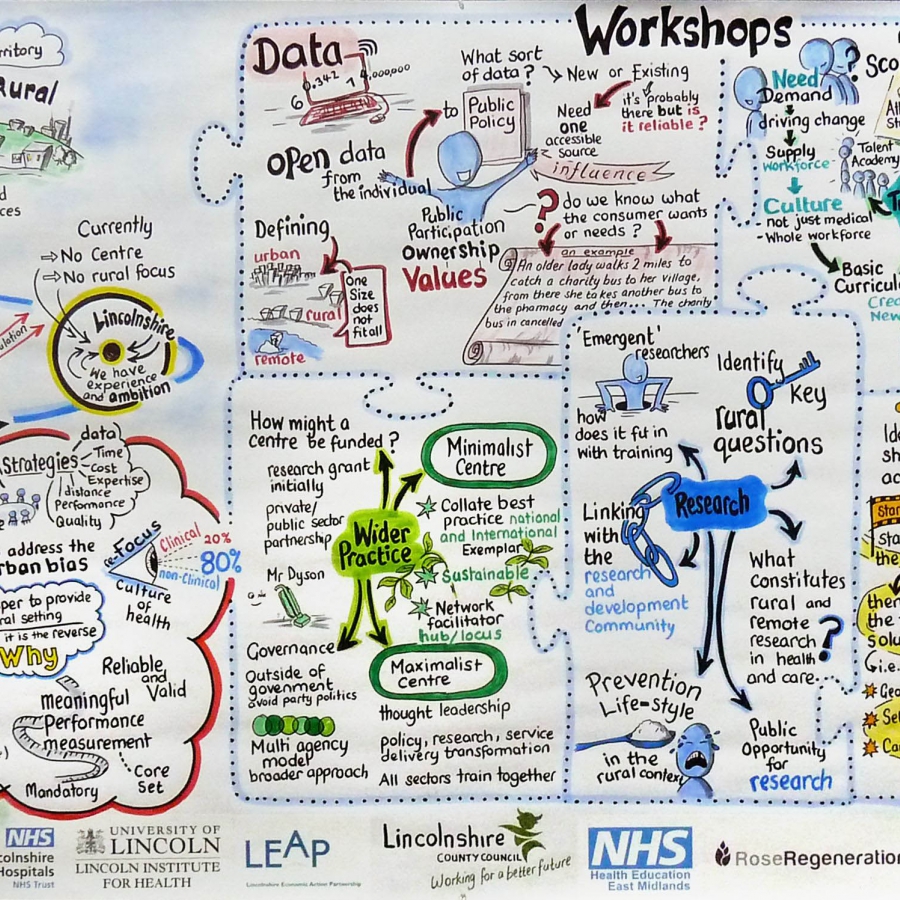 Workshops
rritory
ural
d
ces
Currently
⇒No Centre
⇒No rural focus
Lincolnshire
We have
experience
and ambition
ulation
Data
6 0.342 1 4,000,000
Open data
from
the individual
to
Public
Policy
What sort
of data?
New or Existing
Need
one
accessible
source
it's probably
there but is
it reliable?
influence
Public
Participation
Ownership
Values
? do we know what
the consumer wants
or needs?
Defining
urban
rural
remote
One
Size
does
not
fit all
an example
An older lady walks 2 miles to
catch a charity bus to her village,
from there she takes another bus to
the pharmacy and then... The charity
bus in cancelled
Need
Demand
driving change
Supply
workforce
Culture
not just medical
- Whole workforce
?
Sco
Talent
Academy
Basic
Curricul
Cre
New
data
Strategies
Time
Cost
Expertise
distance
Performance
Quality
address the
rban bias
re-Focus
Clinical 20%
80%
non-Clinical
Culture
of
health
per to provide
ral setting
it is the reverse
Why
Reliable
and
Valid
meaningful
Performance
measurement
Core
Set
Mandatory
How might a
centre be funded?
research grant
initially
private/
public sector
partnership
Mr Dyson
Governance
Outside of
govenment
avoid party politics
Multi agency
model
broader approach
Wider
Practice
Minimalist
Centre
Collate best
practice national
and International
Exemplar
Sustainable
Network
facilitator
hub/locus
Maximalist
Centre
thought leadership
policy, research, service
delivery transformation
All sectors train together
'Emergent'
researchers
how
does it fit in
with training
Identify
Key
rural
questions
Research
Linking
with
the
research
and
development
Community
What
constitutes
rural and
remote
research
in health
and care.. ?
Prevention
Life=style
in the
rural context
Public
Opportunity
for
research
Ide
sh
ac
Star
sta
the
then
the
solu
(i.e.
Geo
Sel
Ca
NHS
colnshire
Hospitals
NHS Trust
UNIVERSITY OF
LINCOLN
LINCOLN INSTITUTE
FOR HEALTH
LEAP
Lincolnshire Economic Action Partnership
Lincolnshire
COUNTY COUNCIL
Working for a better future
NHS
Health Education
East Midlands
RoseRegeneration